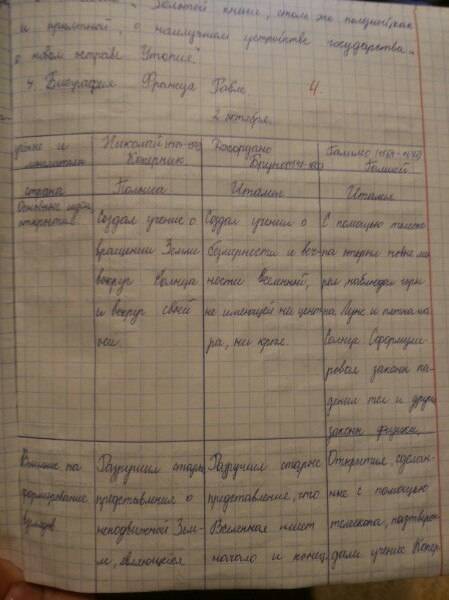 "Золотой книги, столь же полезной, как
и приятной, о наилучшем устройстве государства
о новом острове Утопия"
4. Биография Франца Рабле
4.
2 октября.
Николай (1473-1543) Коперник
Джордано Бруно
Галилео (1564-1642) Галилей
страна
Польша
Италия
Италия
Основные идеи, открытия
Создал учение о
вращении Земли
вокруг Солнца
и вокруг своей
оси.
Создал учении о
безмерности и веч-
ности Вселенной,
не имеющей ни цент
ра, ни края.
С помощью телес
копа
наблюдал горы
на Луне и пятна на
Солнце. Сформули
ровал законы па-
дения тел и другие
законы физики.
Влияние на
формирование
взглядов
Разрушил старые
представления о
неподвижной Зем-
ле, являющейся
Разрушил старые
представление, что
Вселенная имеет
начало и конец
Открытия, сделан-
ные с помощью
телескопа, подтверж
дали учение Копер-